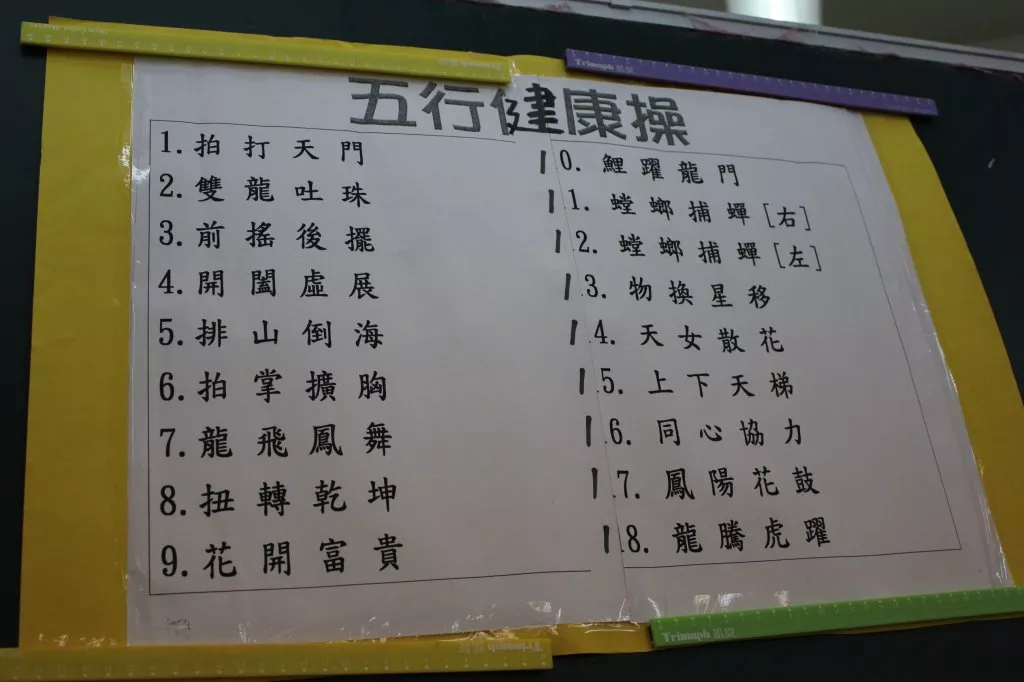 五行健康操
1. 拍打天門
2. 雙龍吐珠
3. 前搖後擺
4. 開闔虛展
5. 排山倒海
6. 拍掌擴胸
7. 龍飛鳳舞
8. 扭轉乾坤
9. 花開富貴
10. 鯉躍龍門
11. 螳螂捕蟬［右］
12. 螳螂捕蟬［左］
13. 物換星移
14. 天女散花
15. 上下天梯
16. 同心協力
17. 鳳陽花鼓
18. 龍騰虎躍
Triumph
Triumph
Triumph
Triumph